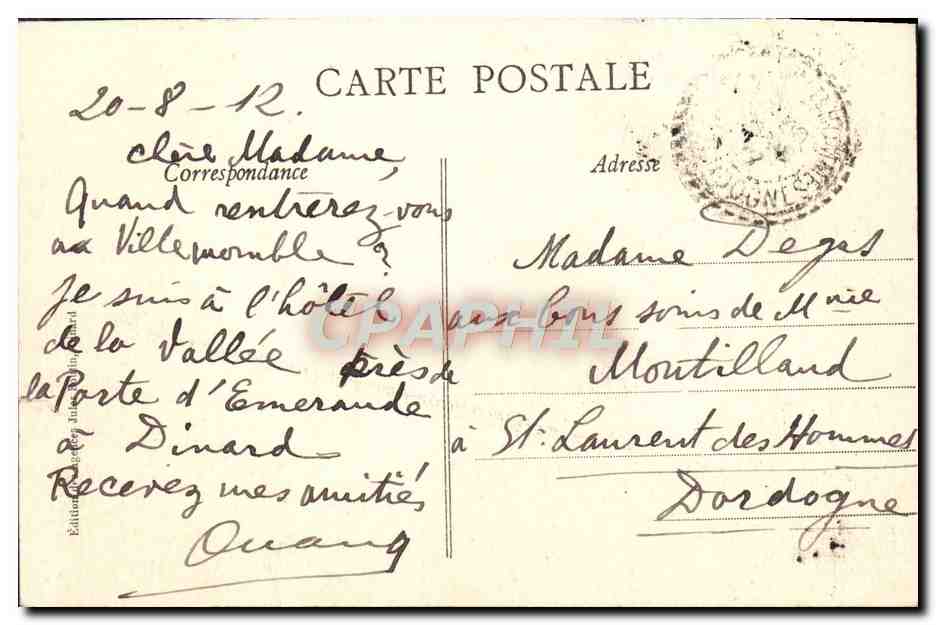 CARTE POSTALE
20-8-12.
chère Madame,
Correspondance
Quand rentrerez-vous
au Villemomble ?
Je suis à l'hôtel
de la Vallée près de
la Porte d'Emeraude
à Dinard
Recevez mes amitiés
Ouang
Adresse
Madame Degas
aux bons soins de Mme
Montilland
à St. Laurent des Hommes
Dordogne
CPAPHIL
Edition des Agences Jules Dinard